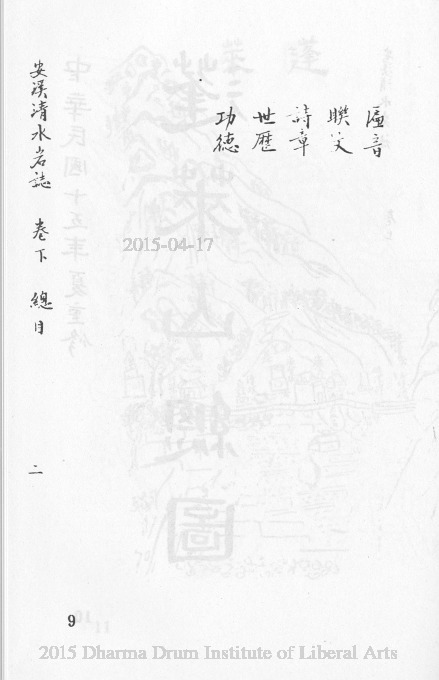 匾音
聯文
詩章
世歷
功德
安溪清水岩誌 卷下 總目 二
2015-04-17
9
2015 Dharma Drum Institute of Liberal Arts